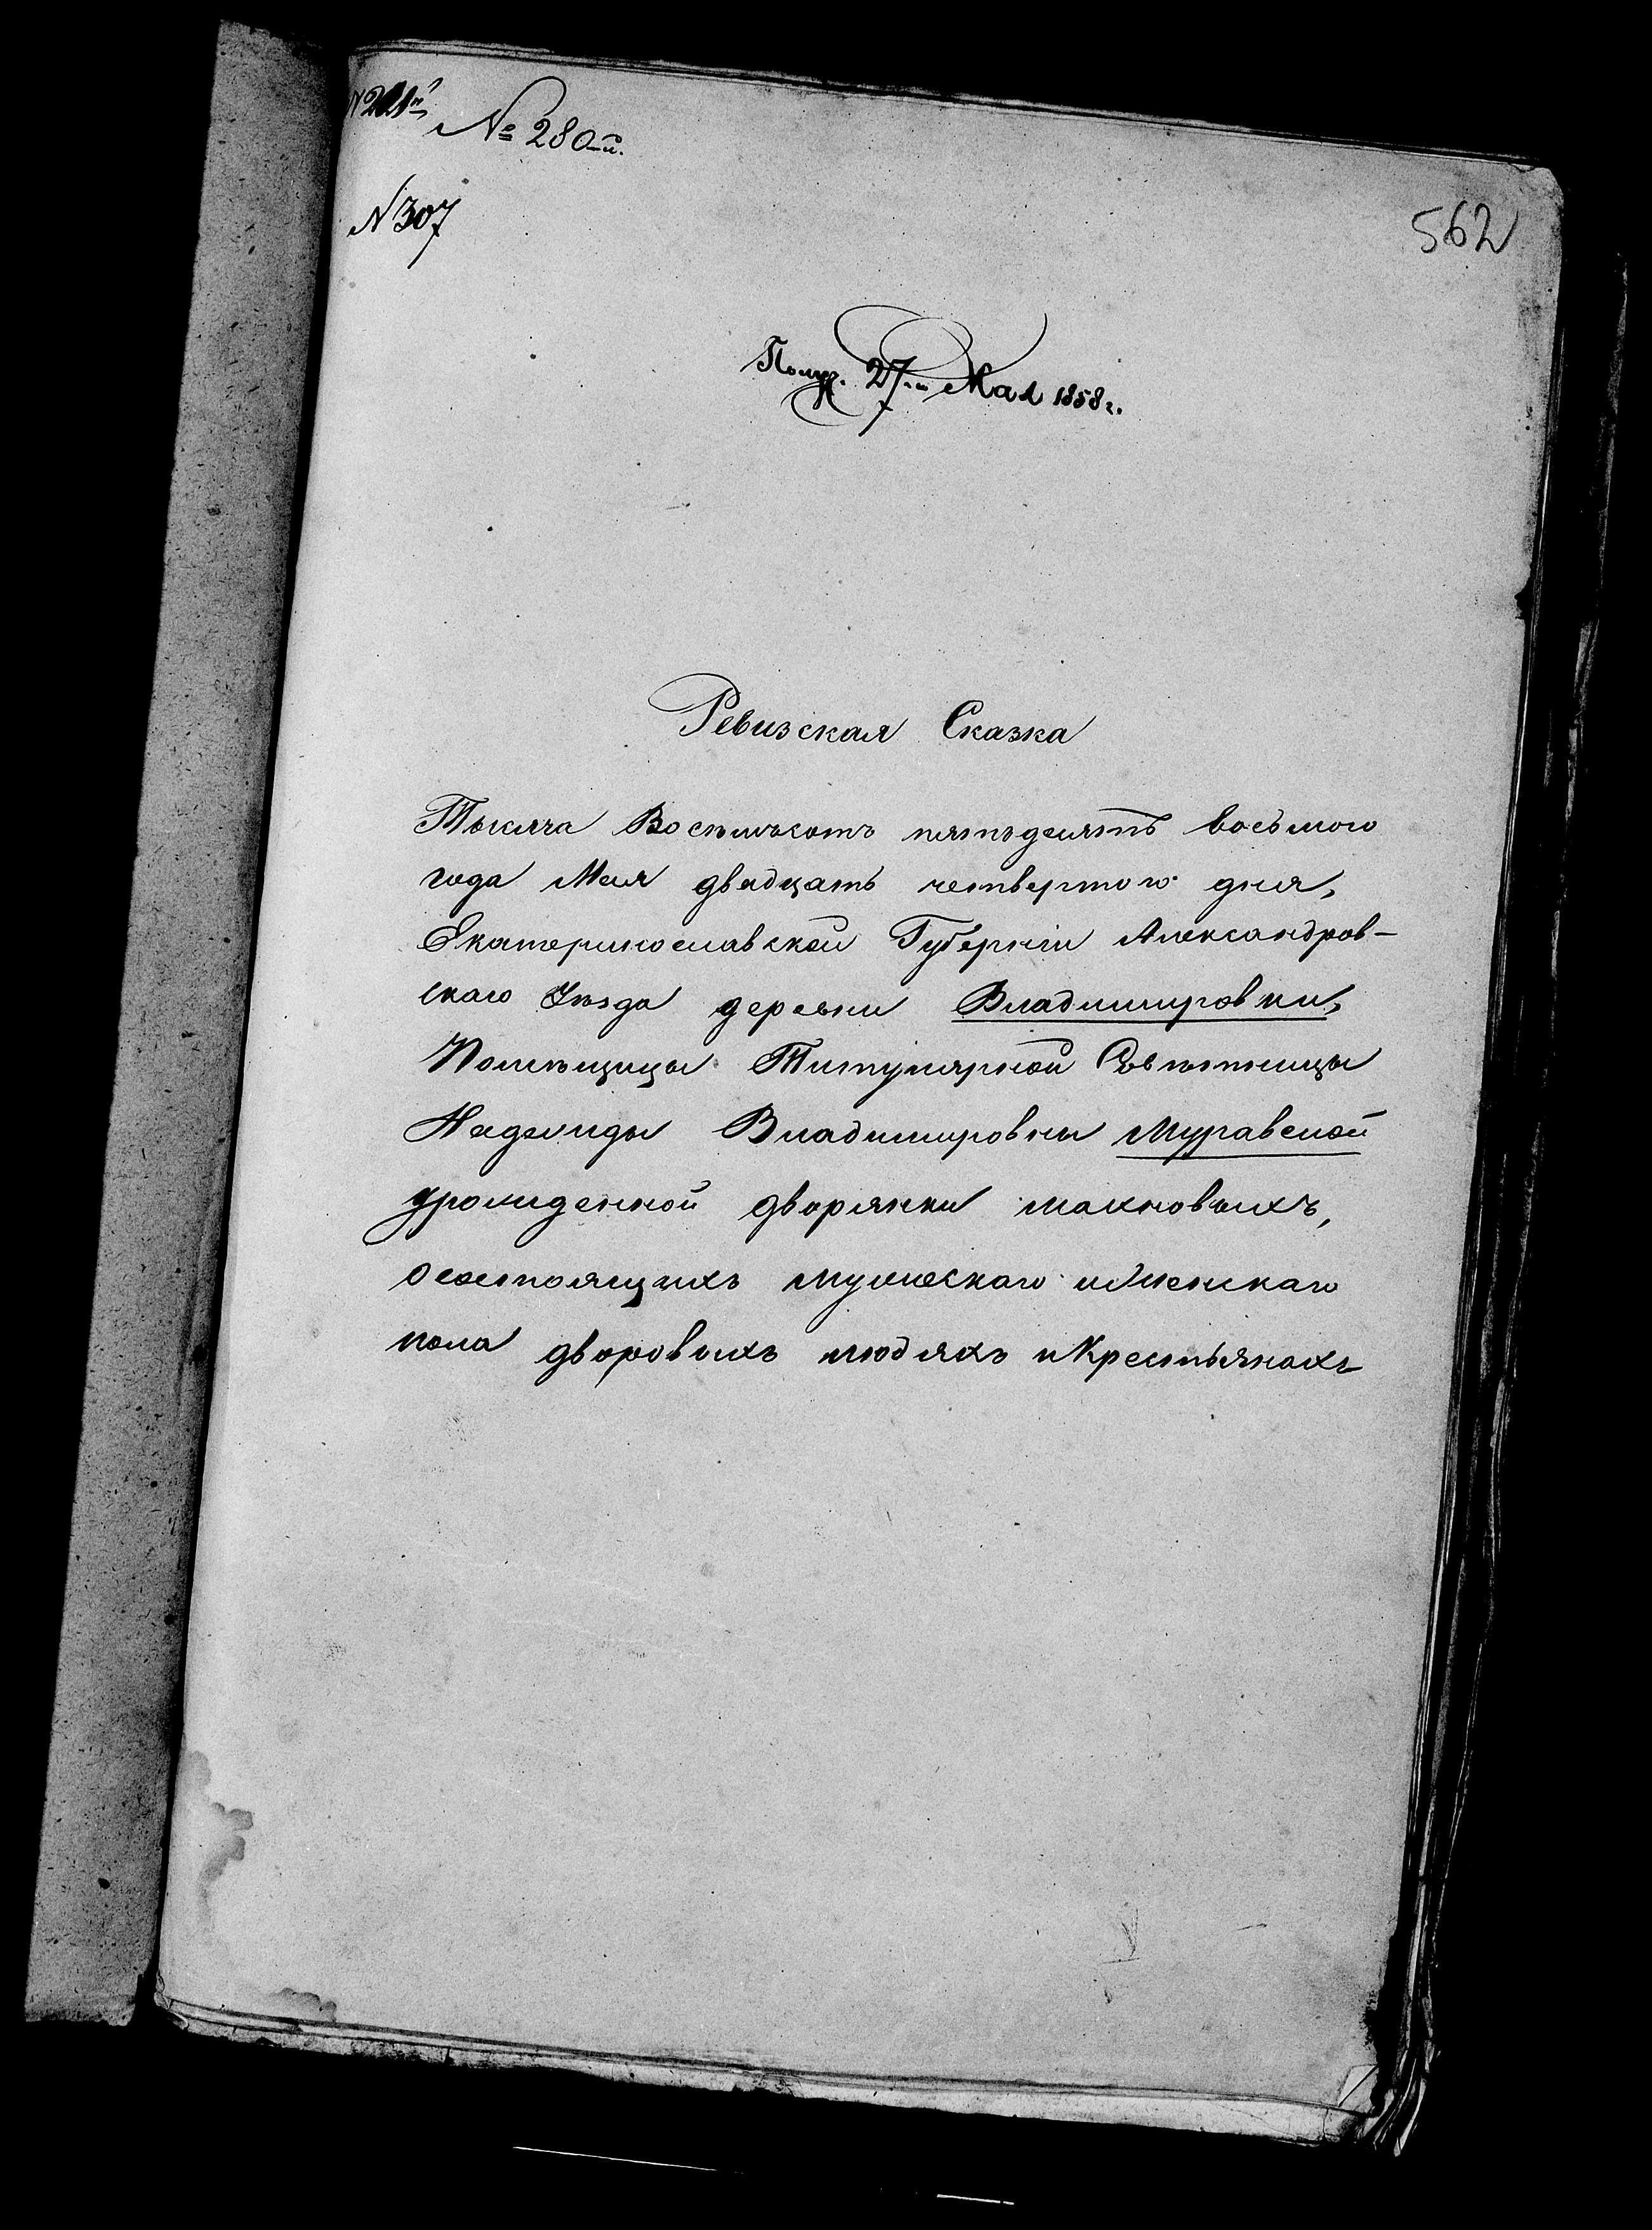 № 280-й.
N 307
562
Получ. 27-го Мая 1858 г.
Ревизская Сказка
Тысяча Восемьсотъ пятьдесятъ восьмого
года Мая двадцать четвертого дня,
Екатеринославской Губерніи Александров-
скаго Уѣзда деревни Владимировки,
Помѣщицы Титулярной Совѣтницы
Надежды Владимировны Муравской
урожденной дворянки Махновыхъ,
о состоящихъ мужескаго и женскаго
пола дворовыхъ людяхъ и Крестьянахъ